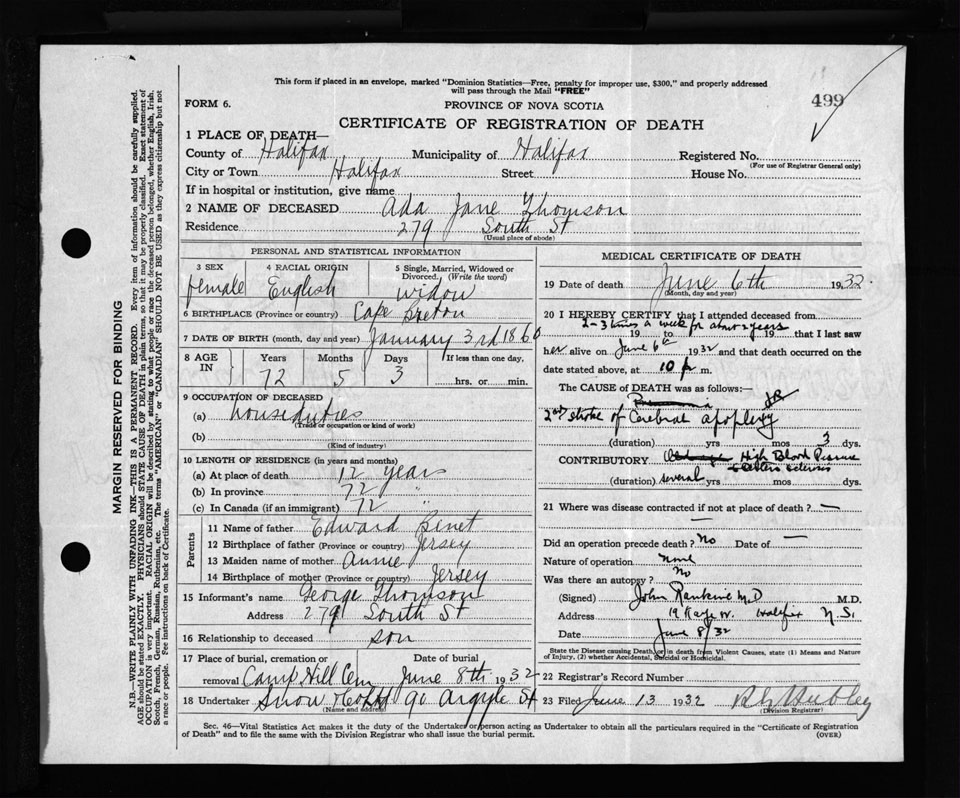 This form if placed in an envelope, marked "Dominion Statistics—Free, penalty for improper use, $300," and properly addressed
will pass through the Mail "FREE"
499
FORM 6.
PROVINCE OF NOVA SCOTIA
CERTIFICATE OF REGISTRATION OF DEATH
1 PLACE OF DEATH—
County of Halifax Municipality of Halifax Registered No.
(For use of Registrar General only)
City or Town Halifax Street House No.
If in hospital or institution, give name
2 NAME OF DECEASED Ada Jane Thomson
Residence 279 South St
(Usual place of abode)
PERSONAL AND STATISTICAL INFORMATION
3 SEX 4 RACIAL ORIGIN 5 Single, Married, Widowed or
Divorced. (Write the word)
female English widow
6 BIRTHPLACE (Province or country) Cape Breton
7 DATE OF BIRTH (month, day and year) January 3rd 1860
8 AGE IN Years Months Days If less than one day,
72 5 3 hrs. or min.
9 OCCUPATION OF DECEASED
(a) houseduties
(Trade or occupation or kind of work)
(b)
(Kind of industry)
10 LENGTH OF RESIDENCE (in years and months)
(a) At place of death 12 years
(b) In province 72 "
(c) In Canada (if an immigrant) 72 "
Parents
11 Name of father Edward Benet
12 Birthplace of father (Province or country) Jersey
13 Maiden name of mother Annie
14 Birthplace of mother (Province or country) Jersey
15 Informant's name George Thomson
Address 279 South St
16 Relationship to deceased son
17 Place of burial, cremation or Date of burial
removal Camp Hill Cem June 8th 1932
18 Undertaker Snow & Co Ltd 90 Argyle St
(Name and address)
MEDICAL CERTIFICATE OF DEATH
19 Date of death June 6th 1932
(Month, day and year)
20 I HEREBY CERTIFY that I attended deceased from
2-3 times a week for about 2 years
19 to 19 that I last saw
her alive on June 6th 1932 and that death occurred on the
date stated above, at 10 p m.
The CAUSE of DEATH was as follows:—
JR
2nd stroke of Cerebral apoplexy
(duration) yrs mos 3 dys.
CONTRIBUTORY High Blood Pressure
(duration) several yrs mos dys.
21 Where was disease contracted if not at place of death? —
—
Did an operation precede death? No Date of —
Nature of operation none
Was there an autopsy? No
(Signed) John Rankine M.D M.D.
Address Halifax N.S.
Date June 8/32
State the Disease causing Death, or in death from Violent Causes, state (1) Means and Nature
of Injury, (2) whether Accidental, Suicidal or Homicidal.
22 Registrar's Record Number
23 Filed June 13 1932
(Division Registrar)
Sec. 46—Vital Statistics Act makes it the duty of the Undertaker or person acting as Undertaker to obtain all the particulars required in the "Certificate of Registration
of Death" and to file the same with the Division Registrar who shall issue the burial permit.
(OVER)
MARGIN RESERVED FOR BINDING
N.B.—WRITE PLAINLY WITH UNFADING INK—THIS IS A PERMANENT RECORD. Every item of information should be carefully supplied.
AGE should be stated EXACTLY. PHYSICIANS should STATE CAUSE OF DEATH in plain terms, so that it may be properly classified. Exact statement of
OCCUPATION is very important. RACIAL ORIGIN will be described by stating to what people or race the deceased person belonged, whether English, Irish,
Scotch, French, German, Russian, Ruthenian, etc. The terms "AMERICAN" or "CANADIAN" SHOULD NOT BE USED as they express citizenship but not
a race or people. See instructions on back of Certificate.